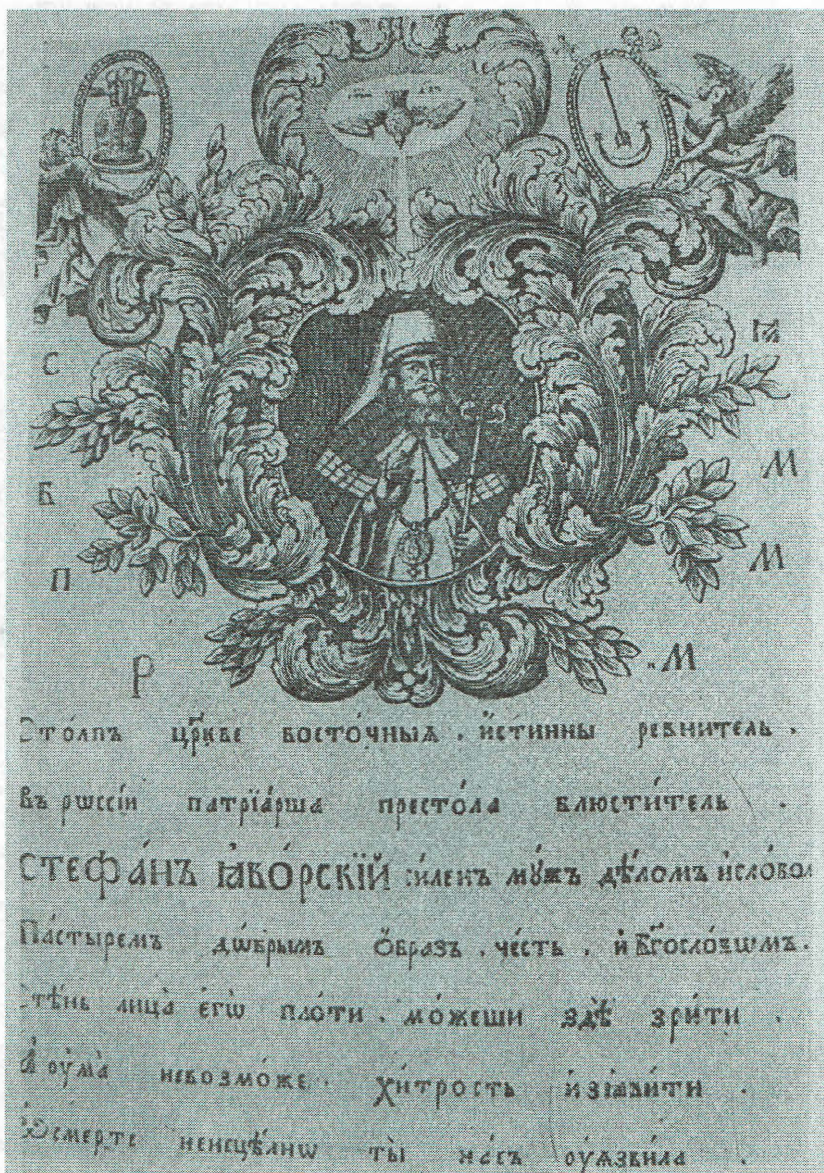 С Ꙗ
Б М
П М
Р М
Столпъ цр҃кве восто́чныѧ . и́стинны ревнитель .
Въ рѡссі́и патрїа́рша престо́ла блюсти́тель .
СТЕФА́НЪ ꙖВО́РСКЇЙ си́ленъ мꙋ́жъ дѣ́ломъ и҆сло́вом
Па́стыремъ дѡ́брымъ ѻ҆́бразъ . че́сть . и҆ Бг҃осло́вѡмъ .
Стѣ́нь лица̀ є҆гѡ̀ пло́ти . мо́жеши здѣ̀ зрѣ́ти .
А҆ оу҆ма̀ невозмо́же . хи́трость и҆зꙗви́ти .
Ѽ сме́рте неисцѣ́лнѡ ты̀ на́съ оу҆ѧзви́ла .